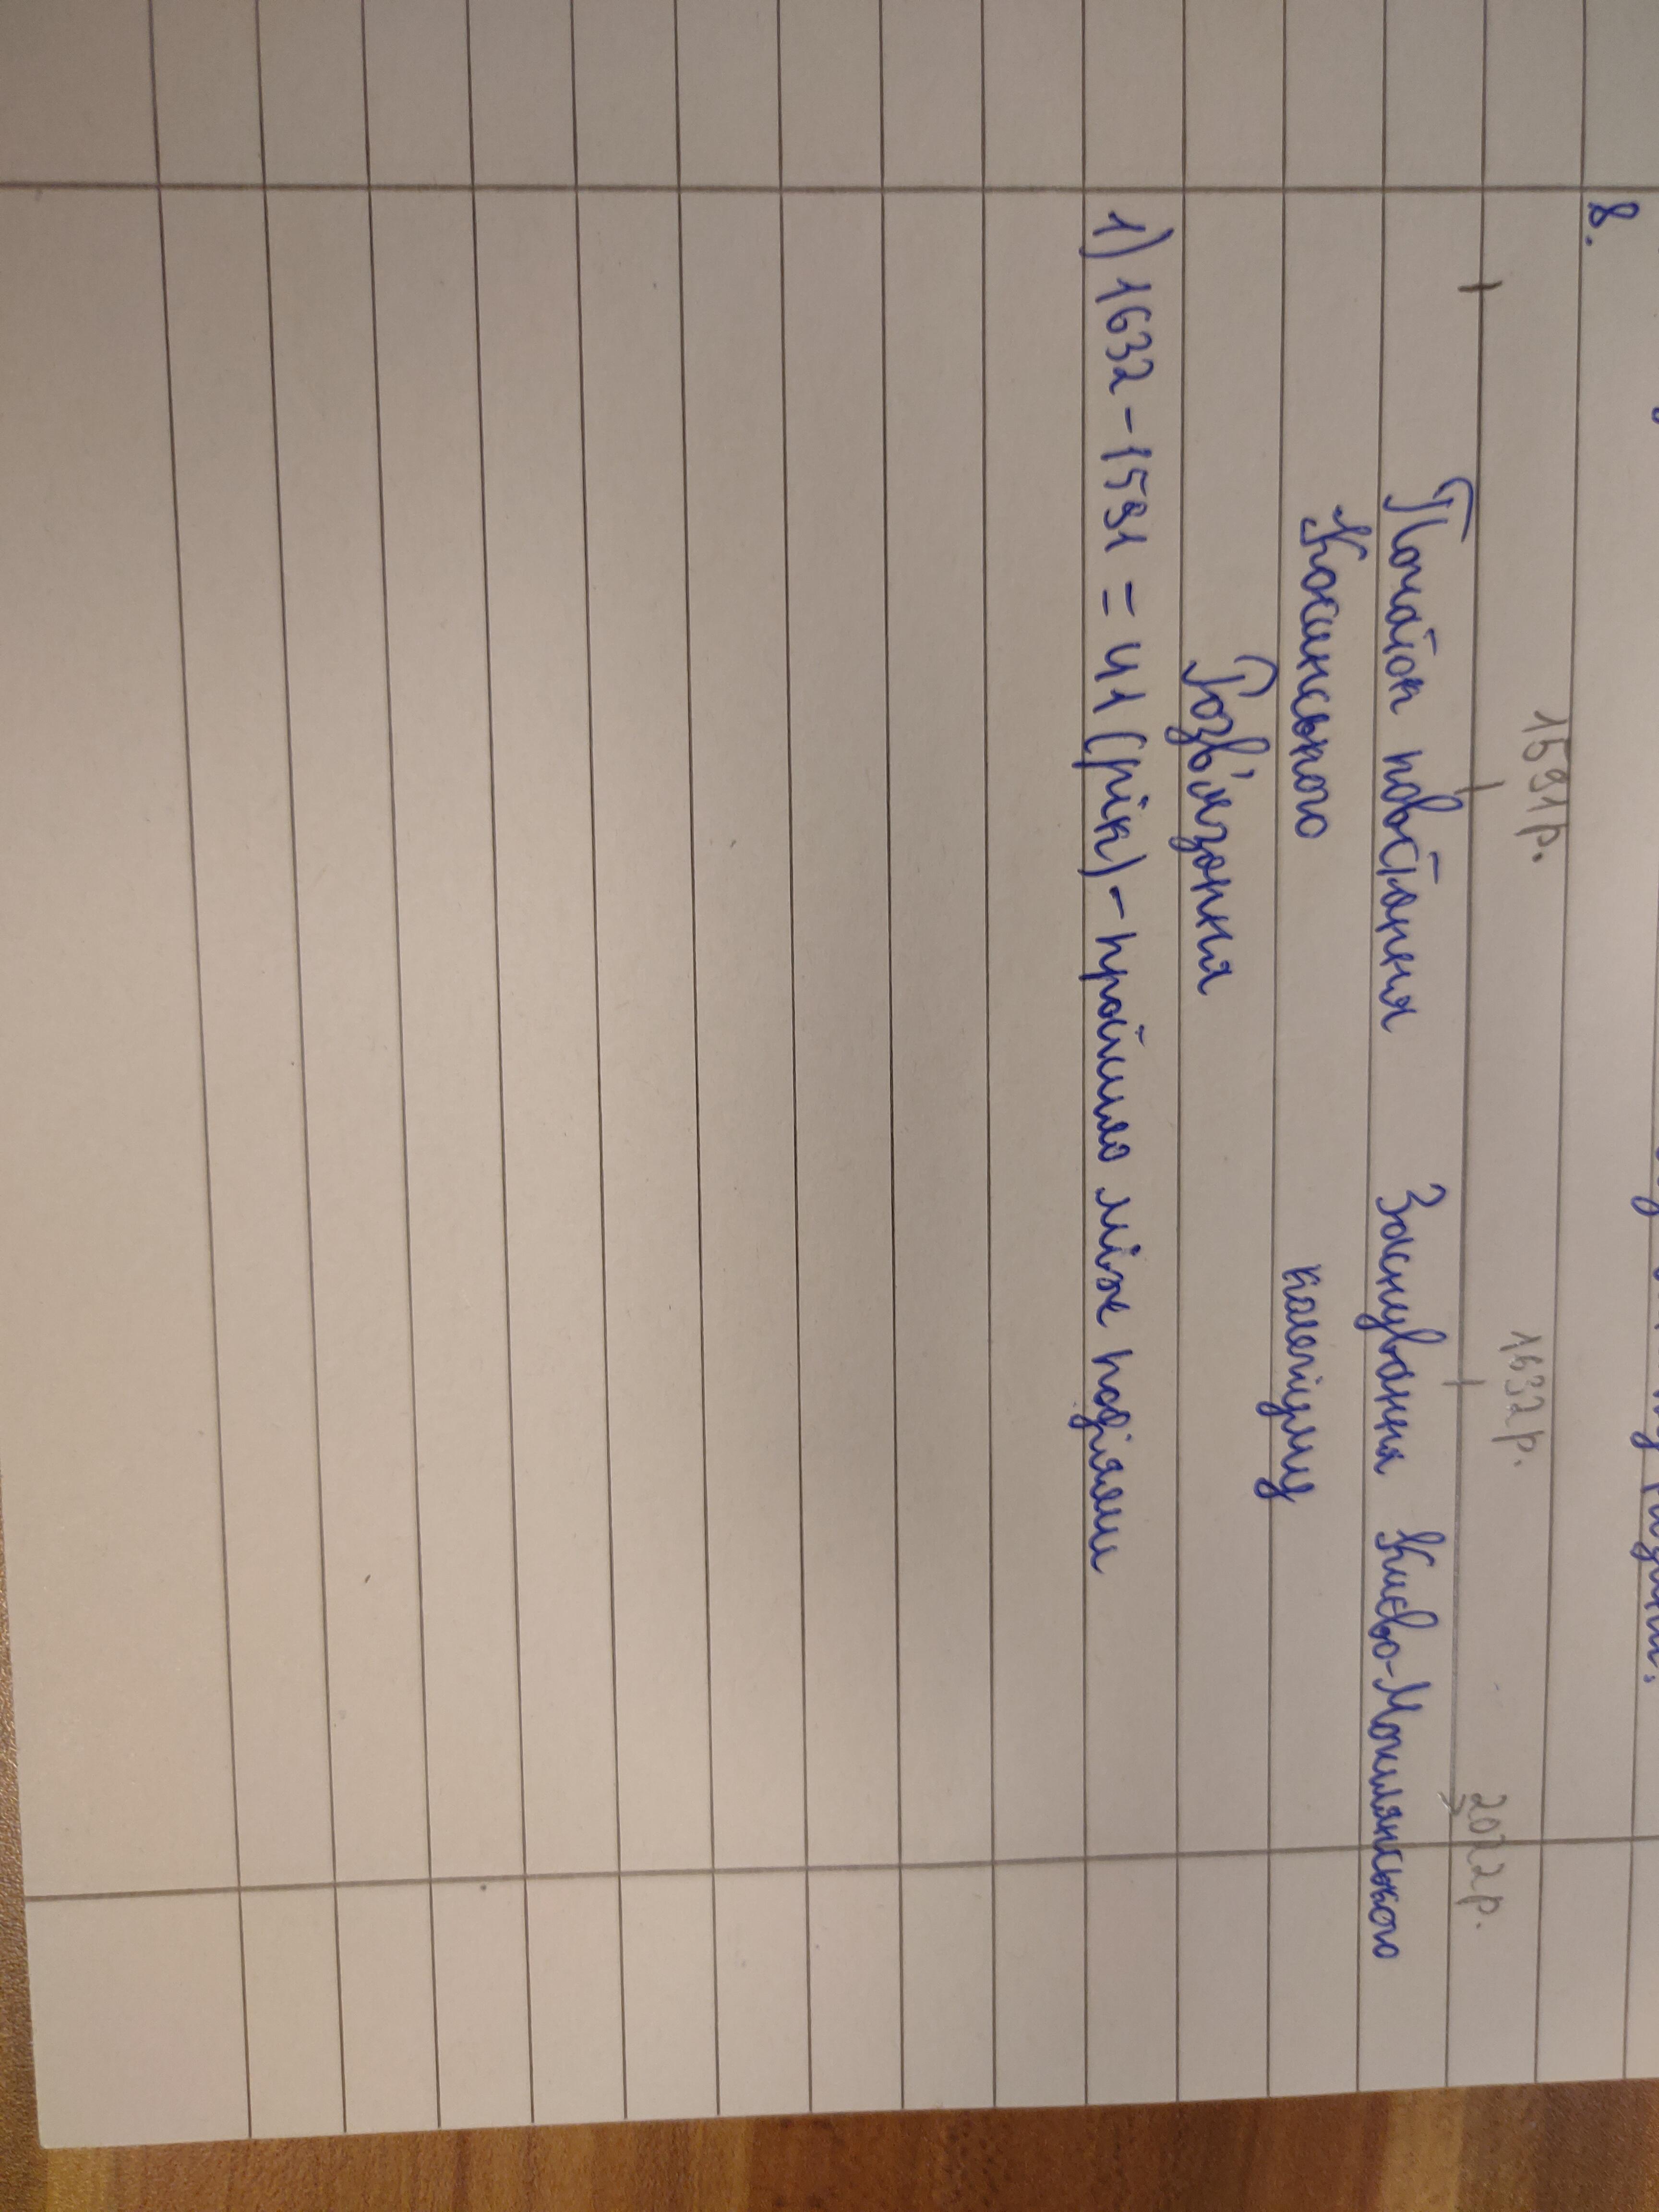 8.
1591р. 1632р. 2022р.
Початок повстання Заснування Києво-Могилянського
Косинського колегіуму
Розв'язання
1) 1632-1591 = 41 (рік) - пройшло між подіями